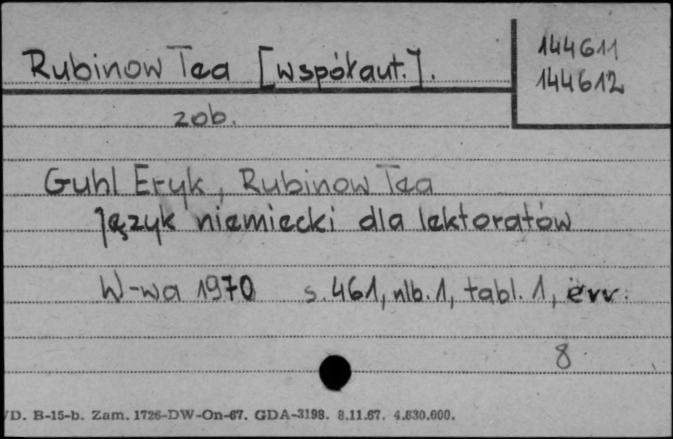 Rubinow Tea [współaut.].
144611
144612
zob.
Guhl Eryk, Rubinow Tea
Język niemiecki dla lektoratów
W-wa 1970 s. 461, nlb. 1, tabl. 1, err.
8
D. B-15-b. Zam. 1726-DW-On-67. GDA-3198. 8.11.67. 4.630.000.